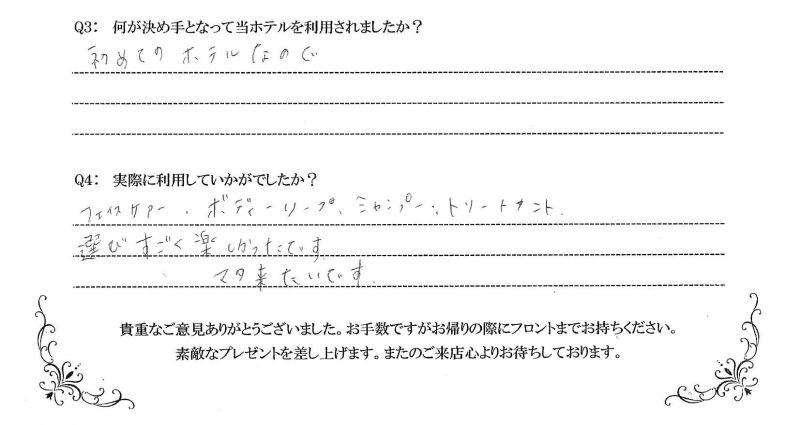 Q3: 何が決め手となって当ホテルを利用されましたか?
初めてのホテルなので
Q4: 実際に利用していかがでしたか?
フェイスケアー、ボディーソープ、シャンプー、トリートメント、
選びすごく楽しかったです。
マタ来たいです。
貴重なご意見ありがとうございました。お手数ですがお帰りの際にフロントまでお持ちください。
素敵なプレゼントを差し上げます。またのご来店心よりお待ちしております。